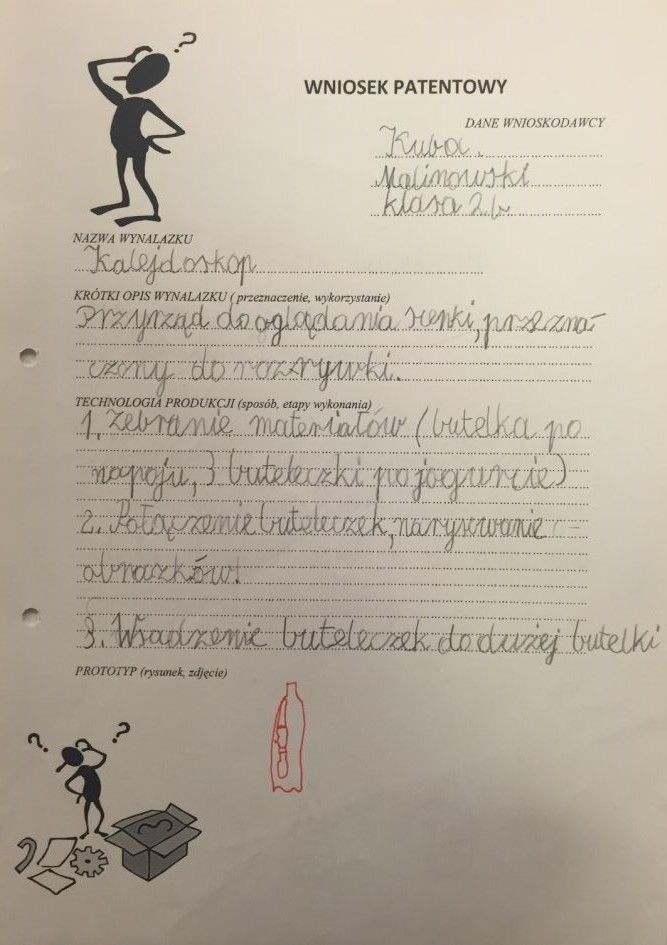 ?
WNIOSEK PATENTOWY
DANE WNIOSKODAWCY
Kuba.
Malinowski
klasa 2b
NAZWA WYNALAZKU
Kalejdoskop
KRÓTKI OPIS WYNALAZKU ( przeznaczenie, wykorzystanie)
Przyrząd do oglądania scenki, przezna-
czony do rozrywki.
TECHNOLOGIA PRODUKCJI (sposób, etapy wykonania)
1. Zebranie materiałów (butelka po
napoju, 3 buteleczki po jogurcie)
2. Połączenie buteleczek, narysowanie
obrazków.
3. Wsadzenie buteleczek do dużej butelki
PROTOTYP (rysunek, zdjęcie)
? ?